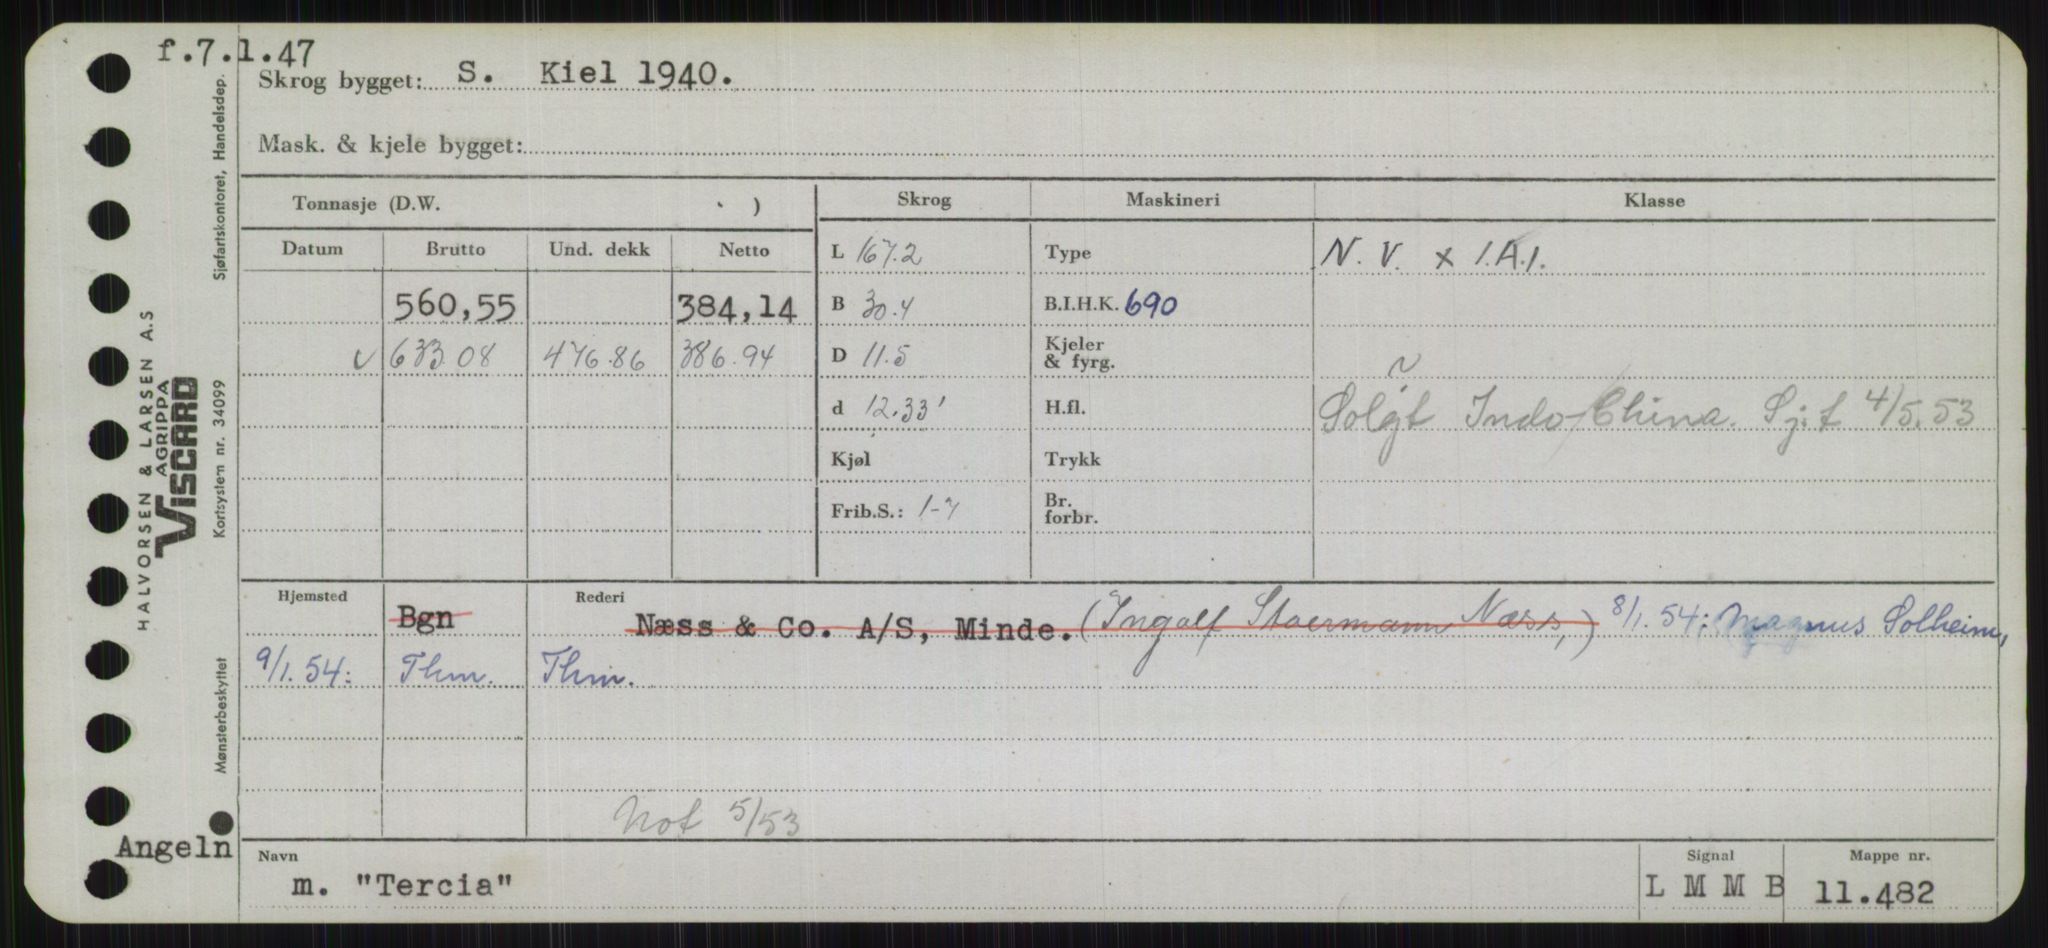 f.7.1.47
Skrog bygget: S. Kiel 1940.
Mask. & kjele bygget:
Tonnasje (D.W. )
Skrog
Maskineri
Klasse
Datum Brutto Und. dekk Netto
L 167.2
Type
N. V. x 1.A.1.
560,55 384,14
B 30.4
B.I.H.K. 690
633.08 476.86 386.94
D 11.5
Kjeler
& fyrg.
d 12.33'
H.fl.
Solgt Indo-China. Sj.f 4/5.53
Kjøl
Trykk
Frib.S.: 1-7
Br.
forbr.
Hjemsted
Rederi
Bgn
Næss & Co. A/S, Minde. (Ingolf Staermann Næss,) 8/1.54: Magnus Solheim,
9/1.54: Thm. Thm.
Not 5/53
Angeln
Navn
m. "Tercia"
Signal
L M M B
Mappe nr.
11.482
HALVORSEN & LARSEN A.S
AGRIPPA
VISCARD
Mønsterbeskyttet Kortsystem nr. 34099 Sjøfartskontoret, Handelsdep.